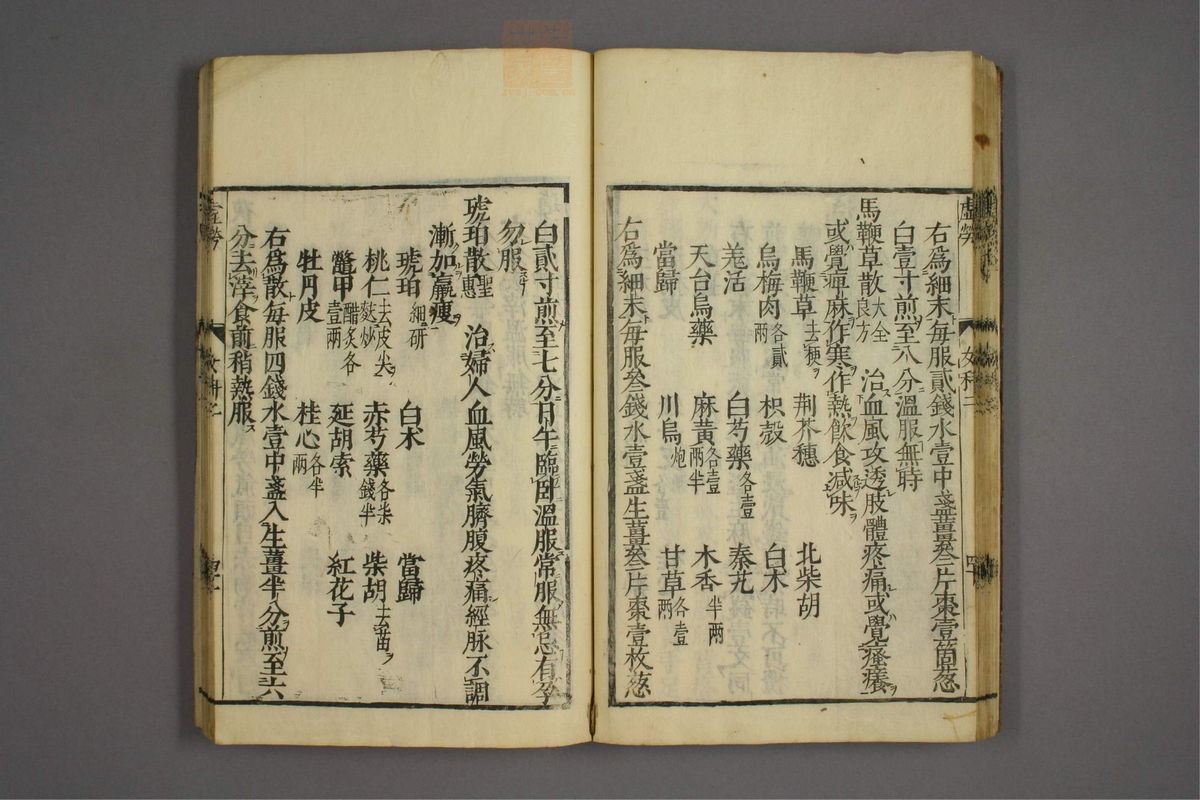 右爲細末每服貳錢水壹中盞薑叄片棗壹箇葱
白壹寸煎至八分溫服無時
馬鞭草散 大全良方 治血風攻透肢體疼痛或覺瘙癢
或覺痺麻作寒作熱飲食減味
馬鞭草 去梗 荆芥穗 北柴胡
烏梅肉 各貳兩 枳殼 白朮
羗活 白芍藥 各壹 秦艽
天台烏藥 麻黃 各壹兩半 木香 半兩
當歸 川烏 炮 甘草 各壹兩
右爲細末每服叄錢水壹盞生薑叄片棗壹枚葱
白貳寸煎至七分日午臨卧溫服常服無忌有孕
勿服
琥珀散 聖惠 治婦人血風勞氣臍腹疼痛經脉不調
漸加羸瘦
琥珀 細研 白朮 當歸
桃仁 去皮尖麩炒 赤芍藥 各柒錢半 柴胡 去苗
鼈甲 醋炙各壹兩 延胡索 紅花子
牡丹皮 桂心 各半兩
右爲散每服四錢水壹中盞入生薑半分煎至六
分去滓食前稍熱服
虛勞 女科二